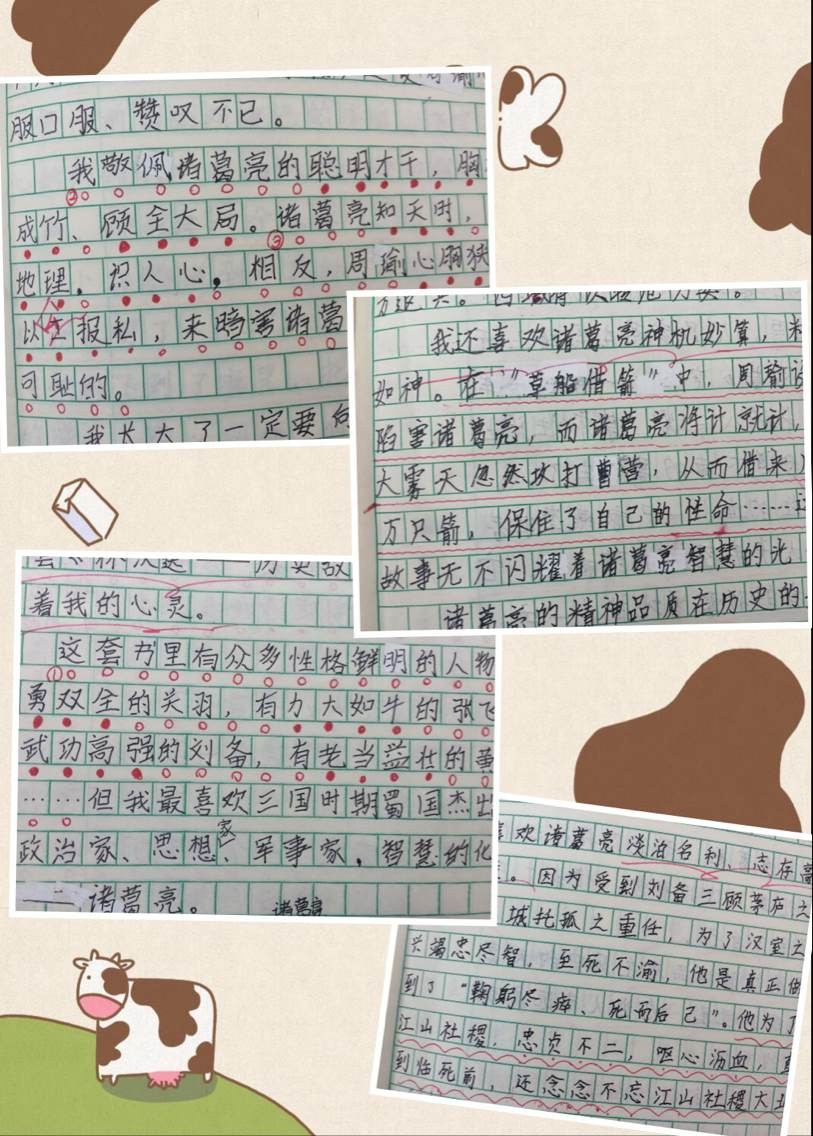 服口服、赞叹不已。
我敬佩诸葛亮的聪明才干，胸
成竹、顾全大局。诸葛亮知天时，
地理，识人心，相反，周瑜心胸狭
以公报私，来暗害诸葛
可耻的。
我长大了一定要向
我还喜欢诸葛亮神机妙算，料
如神。在"草船借箭"中，周瑜设
陷害诸葛亮，而诸葛亮将计就计，
大雾天忽然攻打曹营，从而借来
万只箭，保住了自己的性命……这
故事无不闪耀着诸葛亮智慧的光
诸葛亮的精神品质在历史的
着我的心灵。
这套书里有众多性格鲜明的人物
勇双全的关羽，有力大如牛的张飞
武功高强的刘备，有老当益壮的黄
……但我最喜欢三国时期蜀国杰出
政治家、思想家、军事家，智慧的化
诸葛亮。
诸葛亮
喜欢诸葛亮淡泊名利、志存高
。因为受到刘备三顾茅庐之
城托孤之重任，为了汉室之
兴竭忠尽智，至死不渝，他是真正做
到了"鞠躬尽瘁、死而后已"。他为了
江山社稷，忠贞不二，呕心沥血，直
到临死前，还念念不忘江山社稷大业